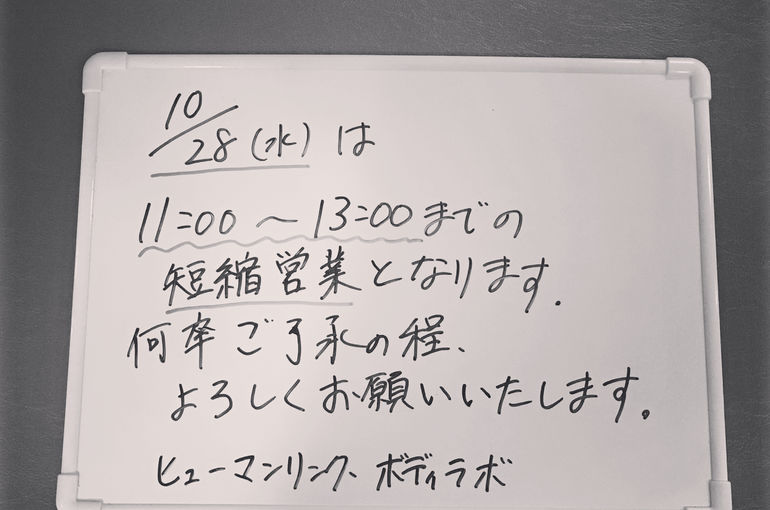 10/28(水)は
11:00~13:00までの
短縮営業となります.
何卒ご了承の程、
よろしくお願いいたします。
ヒューマンリンク、ボディラボ